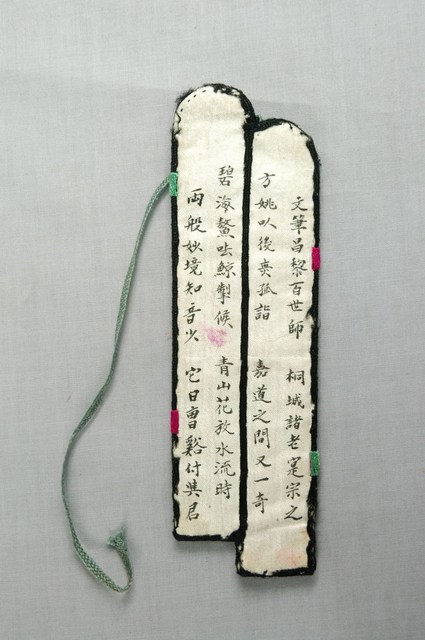 文筆昌黎百世師 桐城諸老寔宗之
方姚以後無孤詣 嘉道之間又一奇
碧海鰲呿鯨掣候 青山花放水流時
兩般妙境知音少 它日曹谿付與君